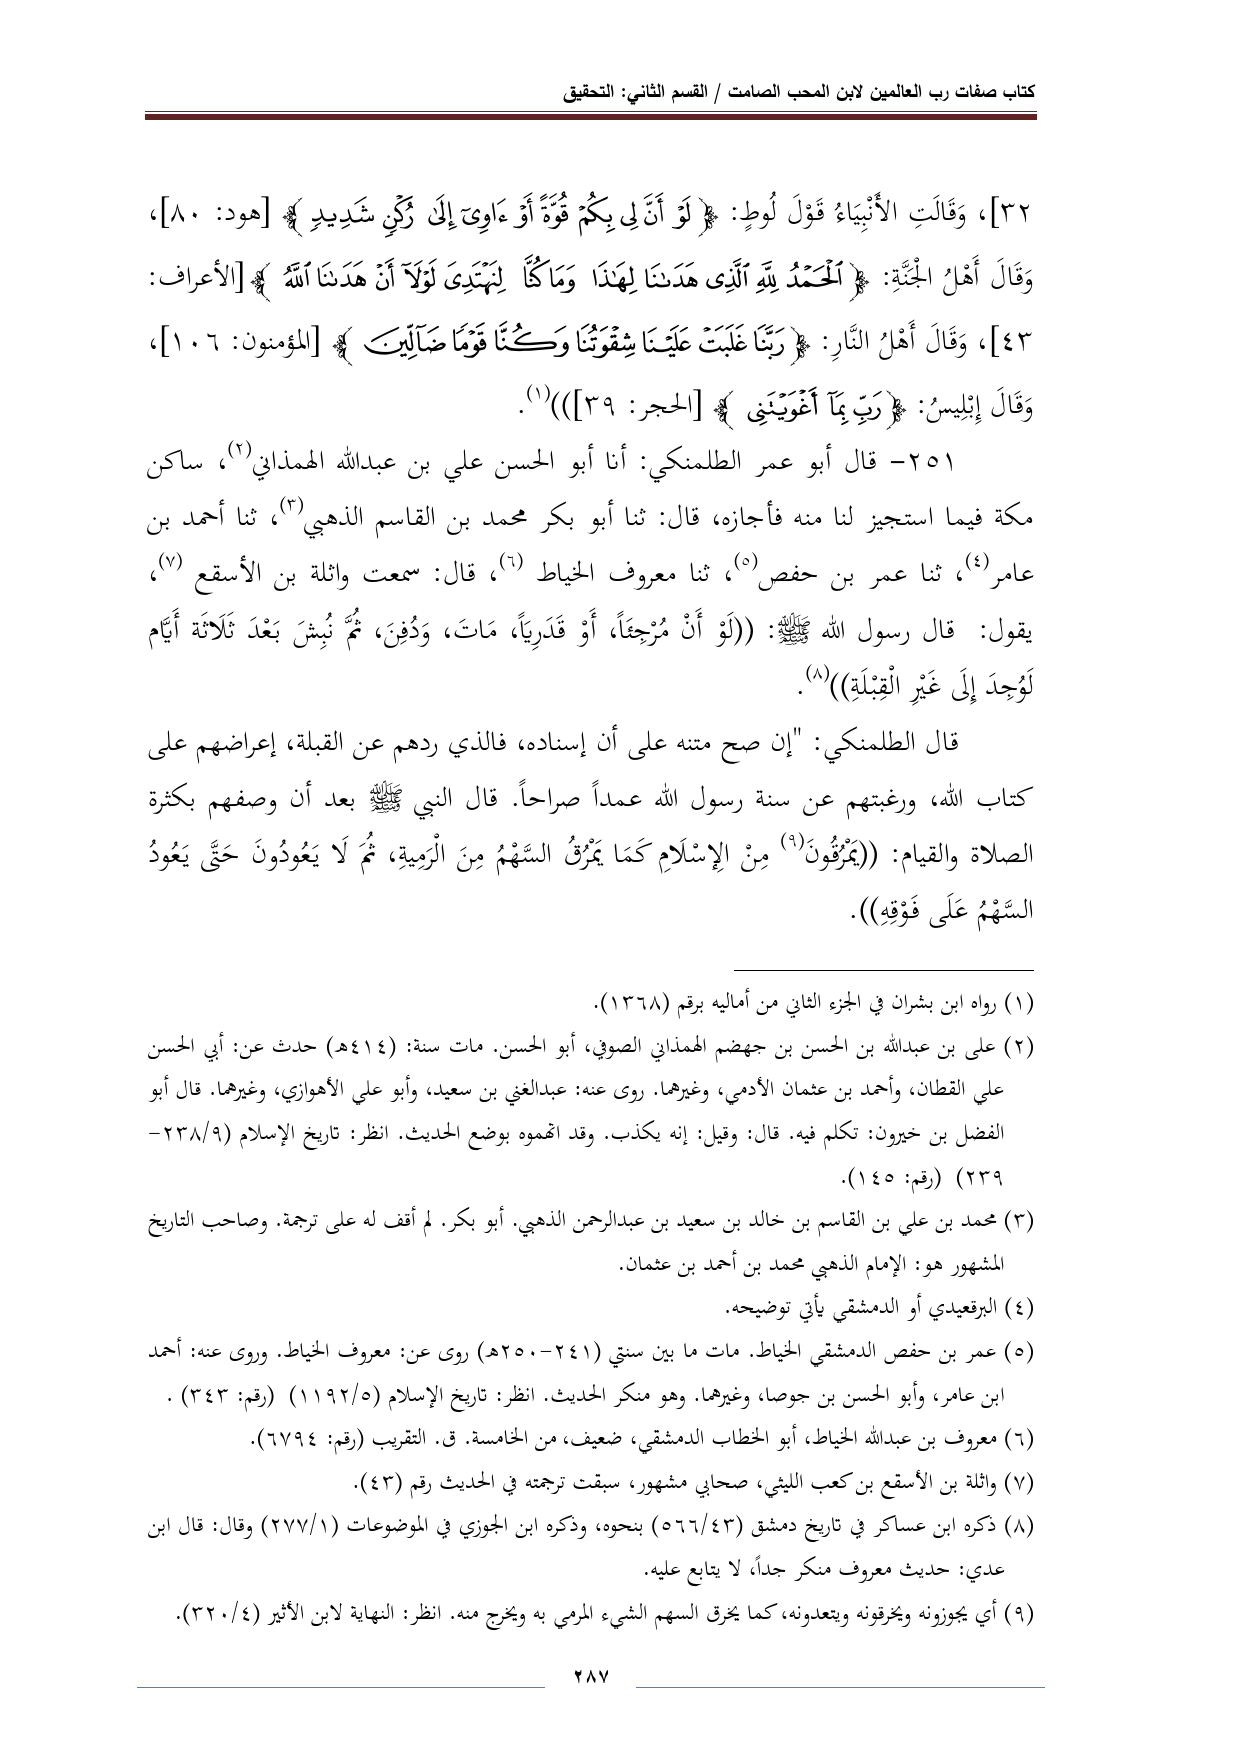 كتاب صفات رب العالمين لابن المحب الصامت / القسم الثاني: التحقيق
٣٢]، وَقَالَتِ الأَنْبِيَاءُ قَوْلَ لُوطٍ: ﴿ لَوْ أَنَّ لِي بِكُمْ قُوَّةً أَوْ ءَاوِىٓ إِلَىٰ رُكْنٍ شَدِيدٍ ﴾ [هود: ٨٠]،
وَقَالَ أَهْلُ الْجَنَّةِ: ﴿ ٱلْحَمْدُ لِلَّهِ ٱلَّذِى هَدَىٰنَا لِهَٰذَا وَمَا كُنَّا لِنَهْتَدِىَ لَوْلَآ أَنْ هَدَىٰنَا ٱللَّهُ ﴾ [الأعراف:
٤٣]، وَقَالَ أَهْلُ النَّارِ: ﴿ رَبَّنَا غَلَبَتْ عَلَيْنَا شِقْوَتُنَا وَكُنَّا قَوْمًا ضَآلِّينَ ﴾ [المؤمنون: ١٠٦]،
وَقَالَ إِبْلِيسُ: ﴿ رَبِّ بِمَآ أَغْوَيْتَنِى ﴾ [الحجر: ٣٩]))(١).
٢٥١- قال أبو عمر الطلمنكي: أنا أبو الحسن علي بن عبدالله الهمذاني(٢)، ساكن
مكة فيما استجيز لنا منه فأجازه، قال: ثنا أبو بكر محمد بن القاسم الذهبي(٣)، ثنا أحمد بن
عامر(٤)، ثنا عمر بن حفص(٥)، ثنا معروف الخياط (٦)، قال: سمعت واثلة بن الأسقع (٧)،
يقول: قال رسول الله ﷺ: ((لَوْ أَنْ مُرْجِئَاً، أَوْ قَدَرِيَاً، مَاتَ، وَدُفِنَ، ثُمَّ نُبِشَ بَعْدَ ثَلَاثَة أَيَّام
لَوُجِدَ إِلَى غَيْرِ الْقِبْلَةِ))(٨).
قال الطلمنكي: "إن صح متنه على أن إسناده، فالذي ردهم عن القبلة، إعراضهم على
كتاب الله، ورغبتهم عن سنة رسول الله عمداً صراحاً. قال النبي ﷺ بعد أن وصفهم بكثرة
الصلاة والقيام: ((يَمْرُقُونَ(٩) مِنْ الِإسْلَامِ كَمَا يَمْرُقُ السَّهْمُ مِنَ الْرَمِيةِ، ثُمَ لَا يَعُودُونَ حَتَّى يَعُودُ
السَّهْمُ عَلَى فَوْقِهِ)).
(١) رواه ابن بشران في الجزء الثاني من أماليه برقم (١٣٦٨).
(٢) على بن عبدالله بن الحسن بن جهضم الهمذاني الصوفي، أبو الحسن. مات سنة: (٤١٤هـ) حدث عن: أبي الحسن
علي القطان، وأحمد بن عثمان الأدمي، وغيرهما. روى عنه: عبدالغني بن سعيد، وأبو علي الأهوازي، وغيرهما. قال أبو
الفضل بن خيرون: تكلم فيه. قال: وقيل: إنه يكذب. وقد اتهموه بوضع الحديث. انظر: تاريخ الإسلام (٢٣٨/٩-
٢٣٩) (رقم: ١٤٥).
(٣) محمد بن علي بن القاسم بن خالد بن سعيد بن عبدالرحمن الذهبي. أبو بكر. لم أقف له على ترجمة. وصاحب التاريخ
المشهور هو: الإمام الذهبي محمد بن أحمد بن عثمان.
(٤) البرقعيدي أو الدمشقي يأتي توضيحه.
(٥) عمر بن حفص الدمشقي الخياط. مات ما بين سنتي (٢٤١-٢٥٠هـ) روى عن: معروف الخياط. وروى عنه: أحمد
ابن عامر، وأبو الحسن بن جوصا، وغيرهما. وهو منكر الحديث. انظر: تاريخ الإسلام (١١٩٢/٥) (رقم: ٣٤٣) .
(٦) معروف بن عبدالله الخياط، أبو الخطاب الدمشقي، ضعيف، من الخامسة. ق. التقريب (رقم: ٦٧٩٤).
(٧) واثلة بن الأسقع بن كعب الليثي، صحابي مشهور، سبقت ترجمته في الحديث رقم (٤٣).
(٨) ذكره ابن عساكر في تاريخ دمشق (٥٦٦/٤٣) بنحوه، وذكره ابن الجوزي في الموضوعات (٢٧٧/١) وقال: قال ابن
عدي: حديث معروف منكر جداً، لا يتابع عليه.
(٩) أي يجوزونه ويخرقونه ويتعدونه، كما يخرق السهم الشيء المرمي به ويخرج منه. انظر: النهاية لابن الأثير (٣٢٠/٤).
٢٨٧